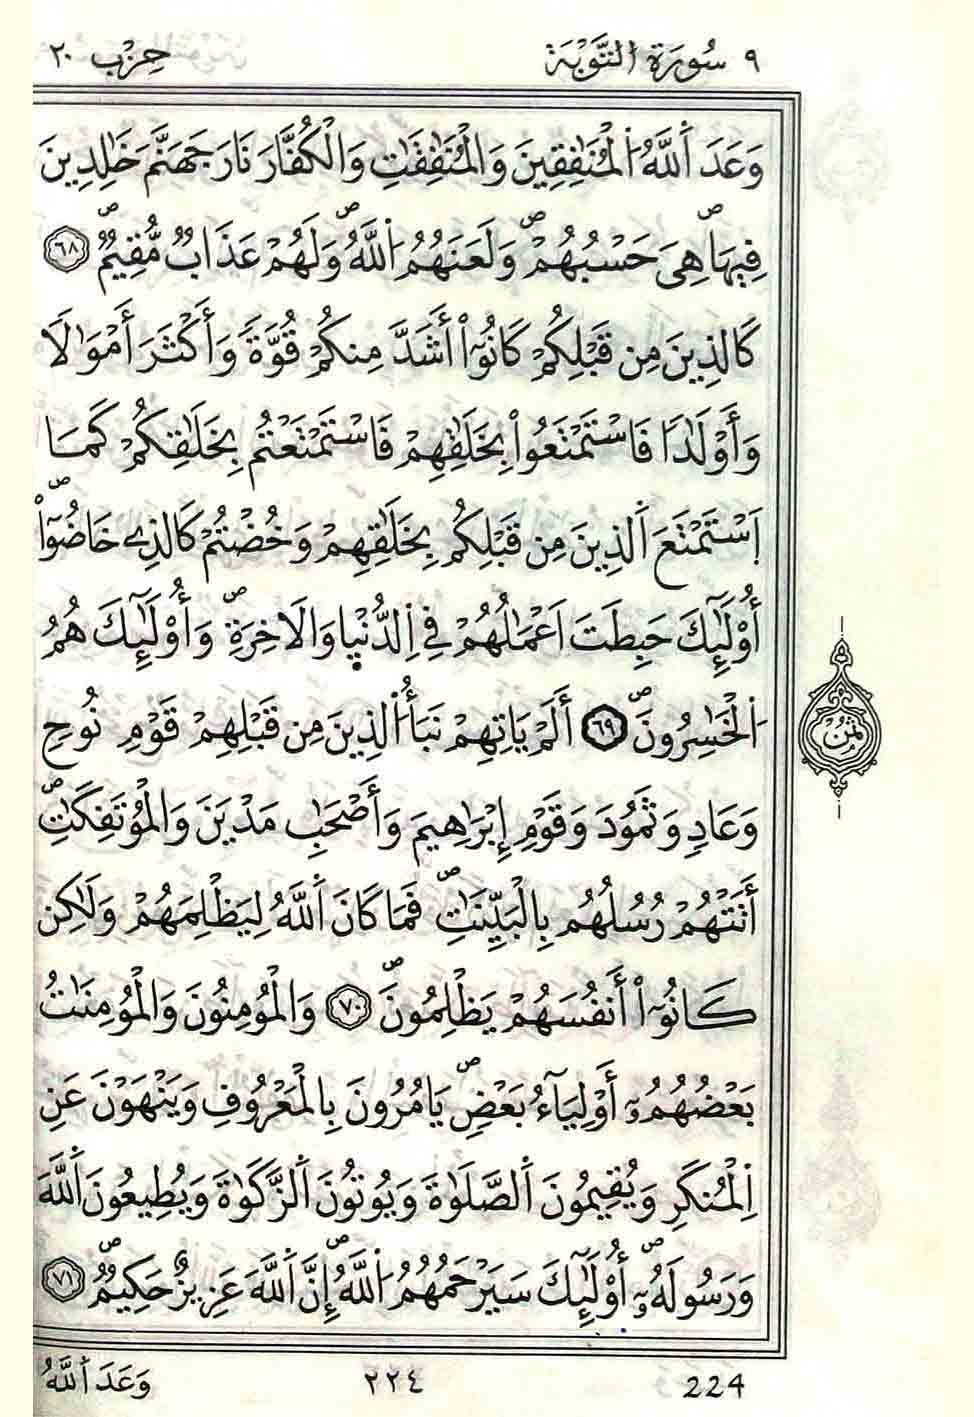 ٩ سُورَةُ التَّوْبَةِ
حِزْب ٢٠
وَعَدَ اَ۬للَّهُ اُ۬لْمُنَٰفِقِينَ وَالْمُنَٰفِقَٰتِ وَالْكُفَّارَ نَارَ جَهَنَّمَ خَٰلِدِينَ
فِيهَاۖ هِيَ حَسْبُهُمْۖ وَلَعَنَهُمُ اُ۬للَّهُۖ وَلَهُمْ عَذَابٞ مُّقِيمٞۖ ٦٨
كَالذِينَ مِن قَبْلِكُمْ كَانُوٓاْ أَشَدَّ مِنكُمْ قُوَّةٗ وَأَكْثَرَ أَمْوَٰلاٗ
وَأَوْلَٰداٗ فَاسْتَمْتَعُواْ بِخَلَٰقِهِمْ فَاسْتَمْتَعْتُم بِخَلَٰقِكُمْ كَمَا
اَ۪سْتَمْتَعَ اَ۬لذِينَ مِن قَبْلِكُم بِخَلَٰقِهِمْ وَخُضْتُمْ كَالذِے خَاضُوٓاْۖ
أُوْلَٰٓئِكَ حَبِطَتَ اَعْمَٰلُهُمْ فِے اِ۬لدُّنْي۪ا وَالَاخِرَةِۖ وَأُوْلَٰٓئِكَ هُمُ
اُ۬لْخَٰسِرُونَۖ ٦٩ أَلَمْ يَاتِهِمْ نَبَأُ اُ۬لذِينَ مِن قَبْلِهِمْ قَوْمِ نُوحٖ
وَعَادٖ وَثَمُودَ وَقَوْمِ إِبْرَٰهِيمَ وَأَصْحَٰبِ مَدْيَنَ وَالْمُوتَفِكَٰتِۖ
أَتَتْهُمْ رُسُلُهُم بِالْبَيِّنَٰتِۖ فَمَا كَانَ اَ۬للَّهُ لِيَظْلِمَهُمْ وَلَٰكِن
كَانُوٓاْ أَنفُسَهُمْ يَظْلِمُونَۖ ٧٠ وَالْمُومِنُونَ وَالْمُومِنَٰتُ
بَعْضُهُمُۥٓ أَوْلِيَآءُ بَعْضٖۖ يَامُرُونَ بِالْمَعْرُوفِ وَيَنْهَوْنَ عَنِ
اِ۬لْمُنكَرِ وَيُقِيمُونَ اَ۬لصَّلَوٰةَ وَيُوتُونَ اَ۬لزَّكَوٰةَ وَيُطِيعُونَ اَ۬للَّهَ
وَرَسُولَهُۥٓۖ أُوْلَٰٓئِكَ سَيَرْحَمُهُمُ اُ۬للَّهُۖ إِنَّ اَ۬للَّهَ عَزِيزٌ حَكِيمٞۖ ٧١
ثُمُنْ
وَعَدَ اَ۬للَّهُ
٢٢٤
224